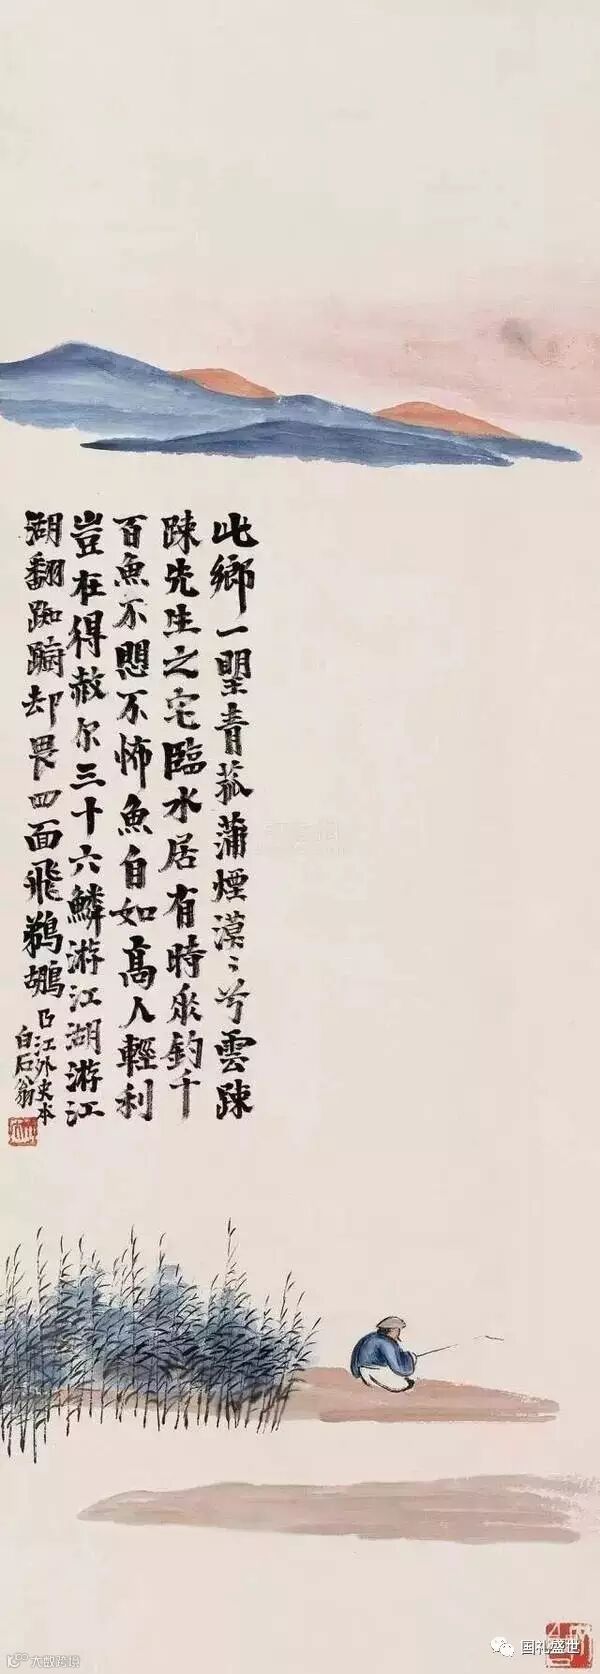 此鄉一望青菰蒲煙漠〻兮雲疎
疎先生之宅臨水居有時來釣千
百魚不愳不怖魚自如高人輕利
豈在得赦尔三十六鱗游江湖游江
湖翻踟躕却畏四面飛鵜鶘
白石翁
国礼盛世
大数跨境